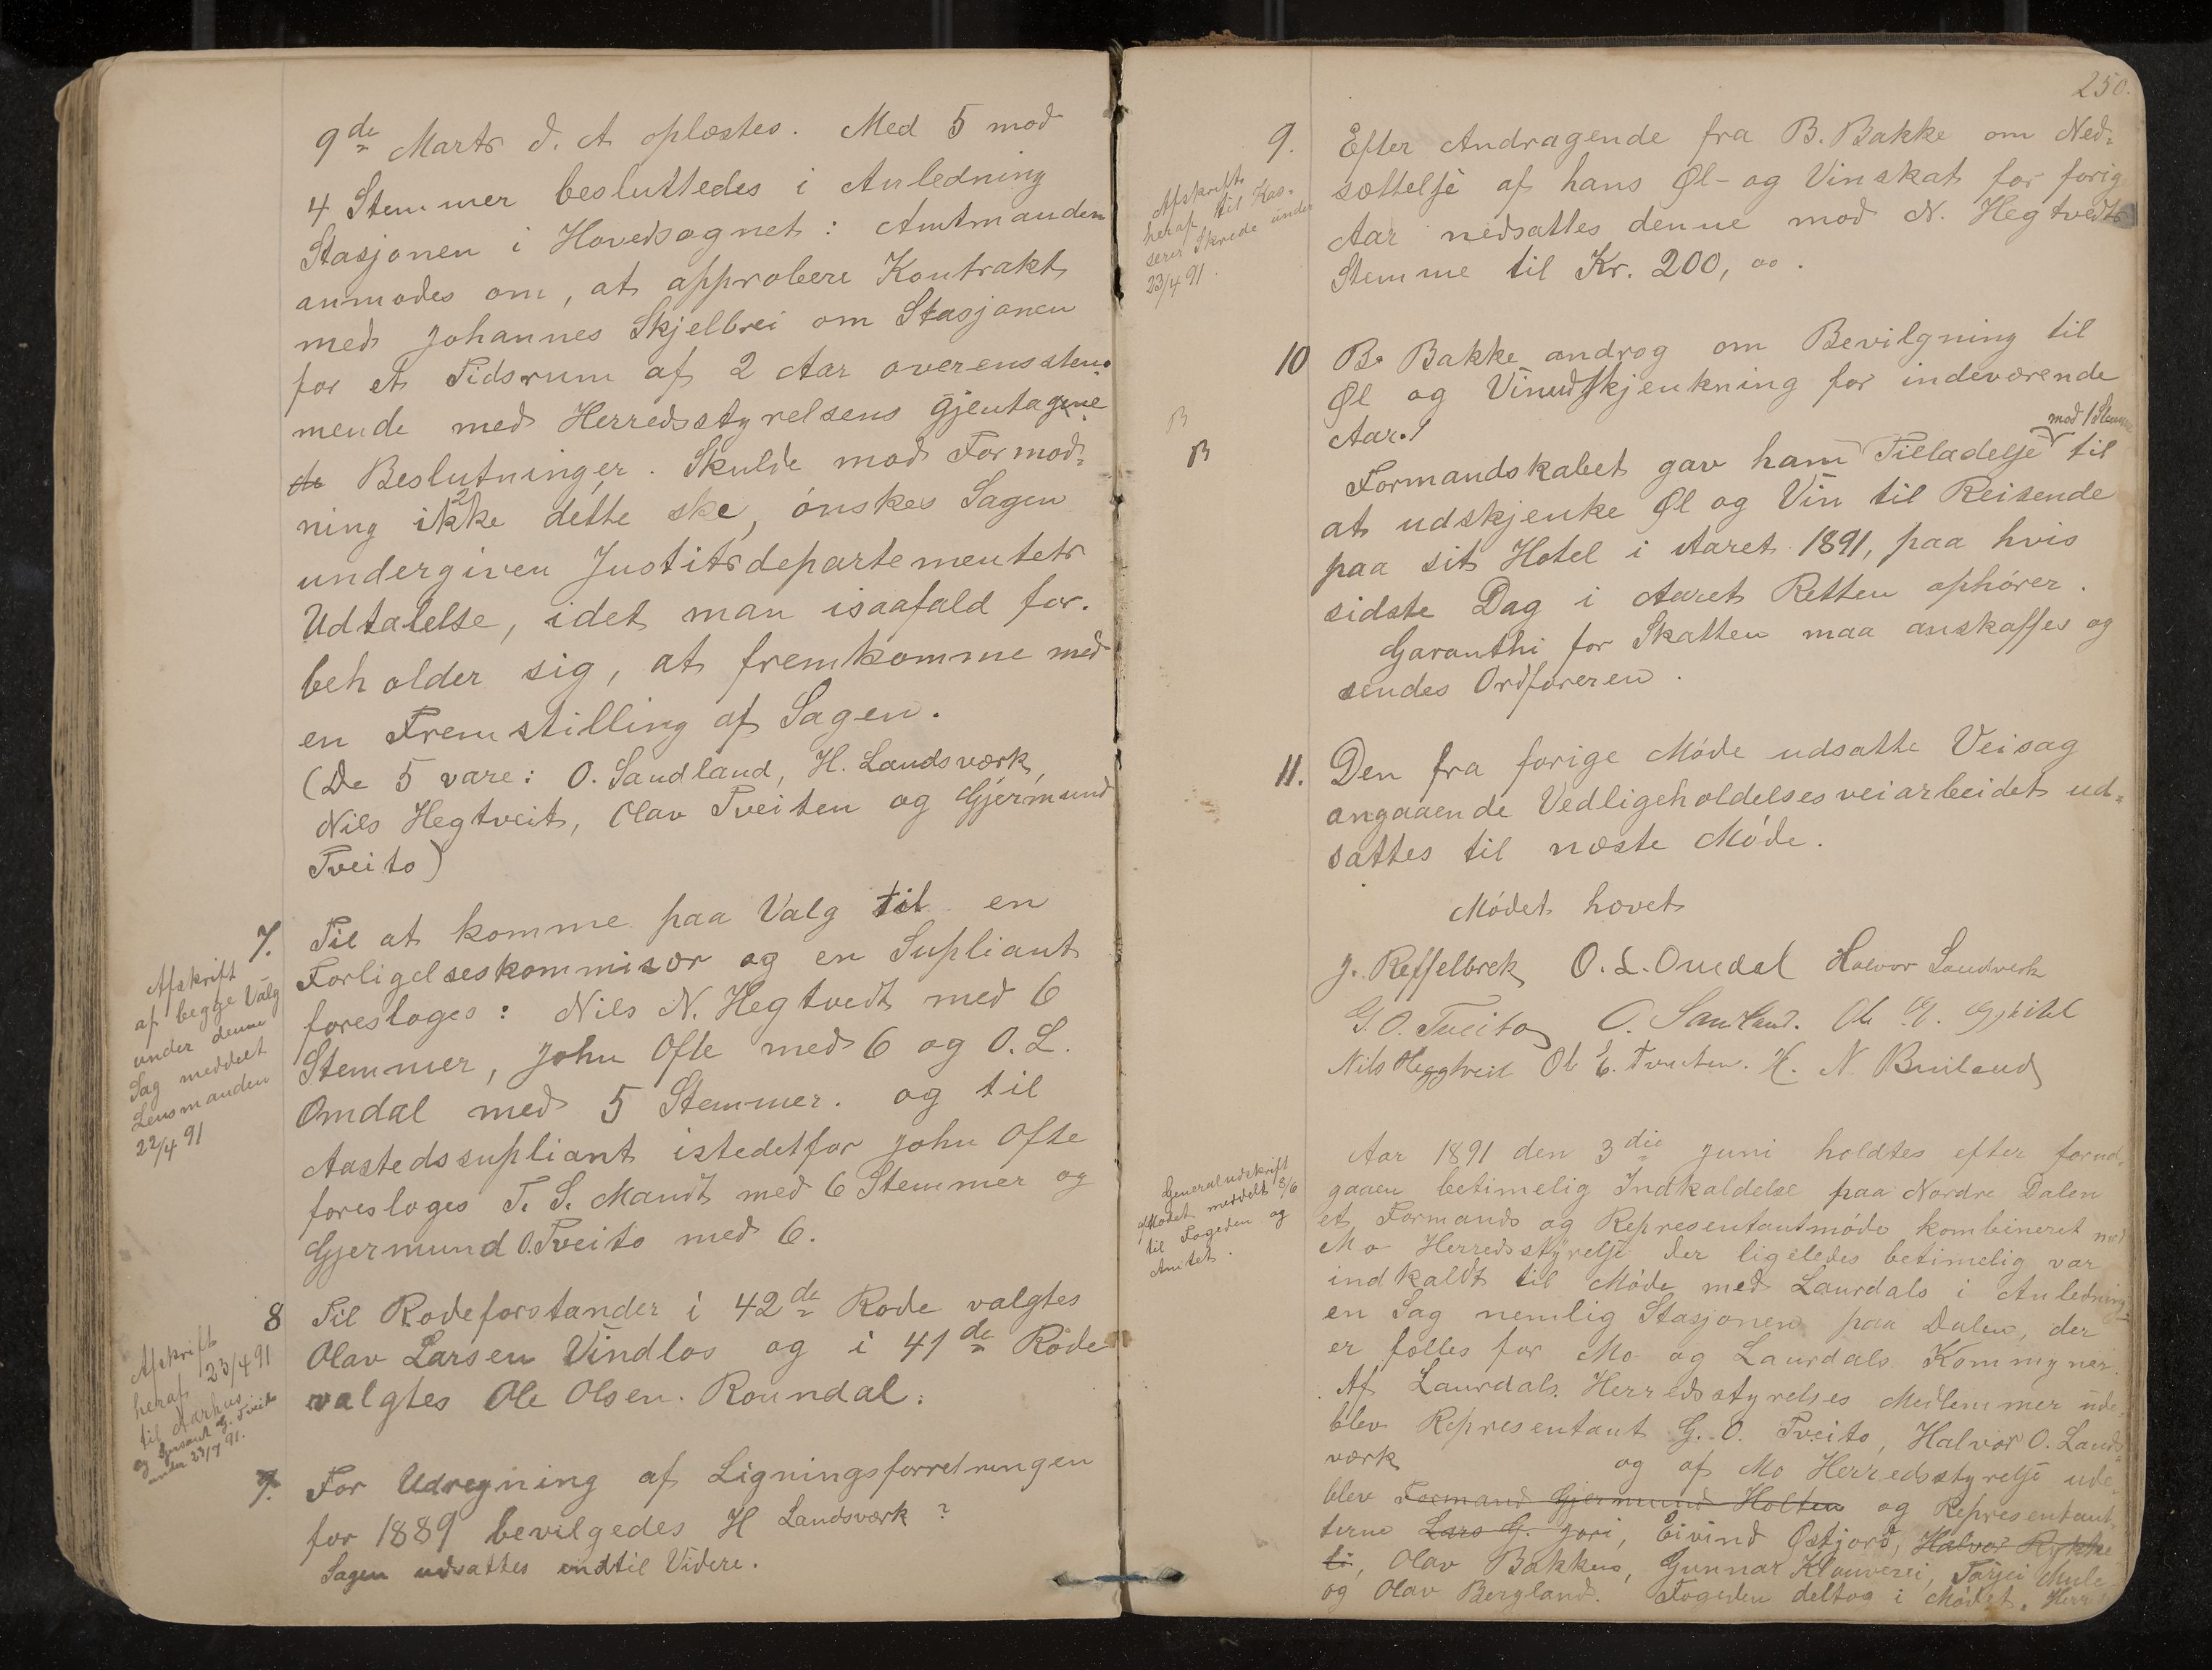 9de Marts d. A oplæstes. Med 5 mod
4 Stemmer besluttedes i Anledning
Stasjonen i Hovedsognet: Amtmanden
anmodes om, at approbere Kontrakt
med Johannes Skjelbrei om Stasjonen
for et Tidsrum af 2 Aar overensstem-
mende med Herredsstyrelsens gjentagene
de Beslutninger. Skulde mod Formod-
ning ikke dette ske, ønskes Sagen
undergiven Justitsdepartementets
Udtalelse, idet man isaafald for-
beholder sig, at fremkomme med
en Fremstilling af Sagen.
(De 5 vare: O. Sandland, H. Landsværk,
Nils Hegtveit, Olav Tveiten og Gjermund
Tveito)
7. Til at komme paa Valg til en
Forligelseskommisær og en Supliant
foresloges: Nils N. Hegtvedt med 6
Stemmer, John Ofte med 6 og O. L.
Omdal med 5 Stemmer. og til
Aastedssupliant istedetfor John Ofte
foresloges T. S. Mandt med 6 Stemmer og
Gjermund O. Tveito med 6.
Afskrift
af begge Valg
under denne
Sag meddelt
Lensmanden
22/4 91
8 Til Rodeforstander i 42de Rode valgtes
Olav Larsen Vindlos og i 41de Rode
valgtes Ole Olsen Roundal.
Afskrift
heraf 23/4 91
til Aarhus
og G. Tveito
under 23/7 91.
9. For Udregning af Ligningsforretningen
for 1889 bevilgedes H Landsværk ?
Sagen udsattes indtil Videre.
250.
9. Efter Andragende fra B. Bakke om Ned-
sættelse af hans Øl- og Vinskat for forig
Aar nedsattes denne mod N. Hegtvedts
Stemme til Kr. 200, 00.
Afskrift
heraf til Kas-
serer Skrede under
23/4 91.
10 B. Bakke androg om Bevilgning til
Øl og Vinudskjenkning for indeværende
Aar.
mod 1 Stemme
Formandskabet gav ham Tilladelse til
at udskjenke Øl og Vin til Reisende
paa sit Hotel i Aaret 1891, paa hvis
sidste Dag i Aaret Retten ophører.
Garanthi for Skatten maa anskaffes og
sendes Ordføreren.
B
B
11. Den fra forige Møde udsatte Veisag
angaaende Vedligeholdelsesveiarbeidet ud-
sattes til næste Møde.
Mødet hævet
O. L. Omdal Halvor Landverk
G. O. Tveito O. Sandland.
Nils Heggtveit Ol E. Tveiten. H. N. Builand
Aar 1891 den 3die Juni holdtes efter forud-
gaaen betimelig Indkaldelse paa Nordre Dalen
et Formands og Representantmøde kombineret med
Mo Herredsstyrelse der ligeledes betimelig var
indkaldt til Møde med Laurdals i Anledning
en Sag nemlig Stasjonen paa Dalen, der
er fælles for Mo og Laurdals Kommuner.
Af Laurdals Herredsstyrelses Medlemmer ude-
blev Representant G. O. Tveito, Halvor O. Lands-
værk og af Mo Herredsstyrelse ude-
blev Formand Gjermund Holten og Representant-
terne Lars G. Jori, Eivind Østjord, Halvor Rykke
li, Olav Bakkus, Gunnar Klauverei, Tarjei Mule
og Olav Bergland. Fogeden deltog i Mødet. Herr
Generaludskrift
af Mødet meddelt 8/6
til Fogeden og
Amtet.